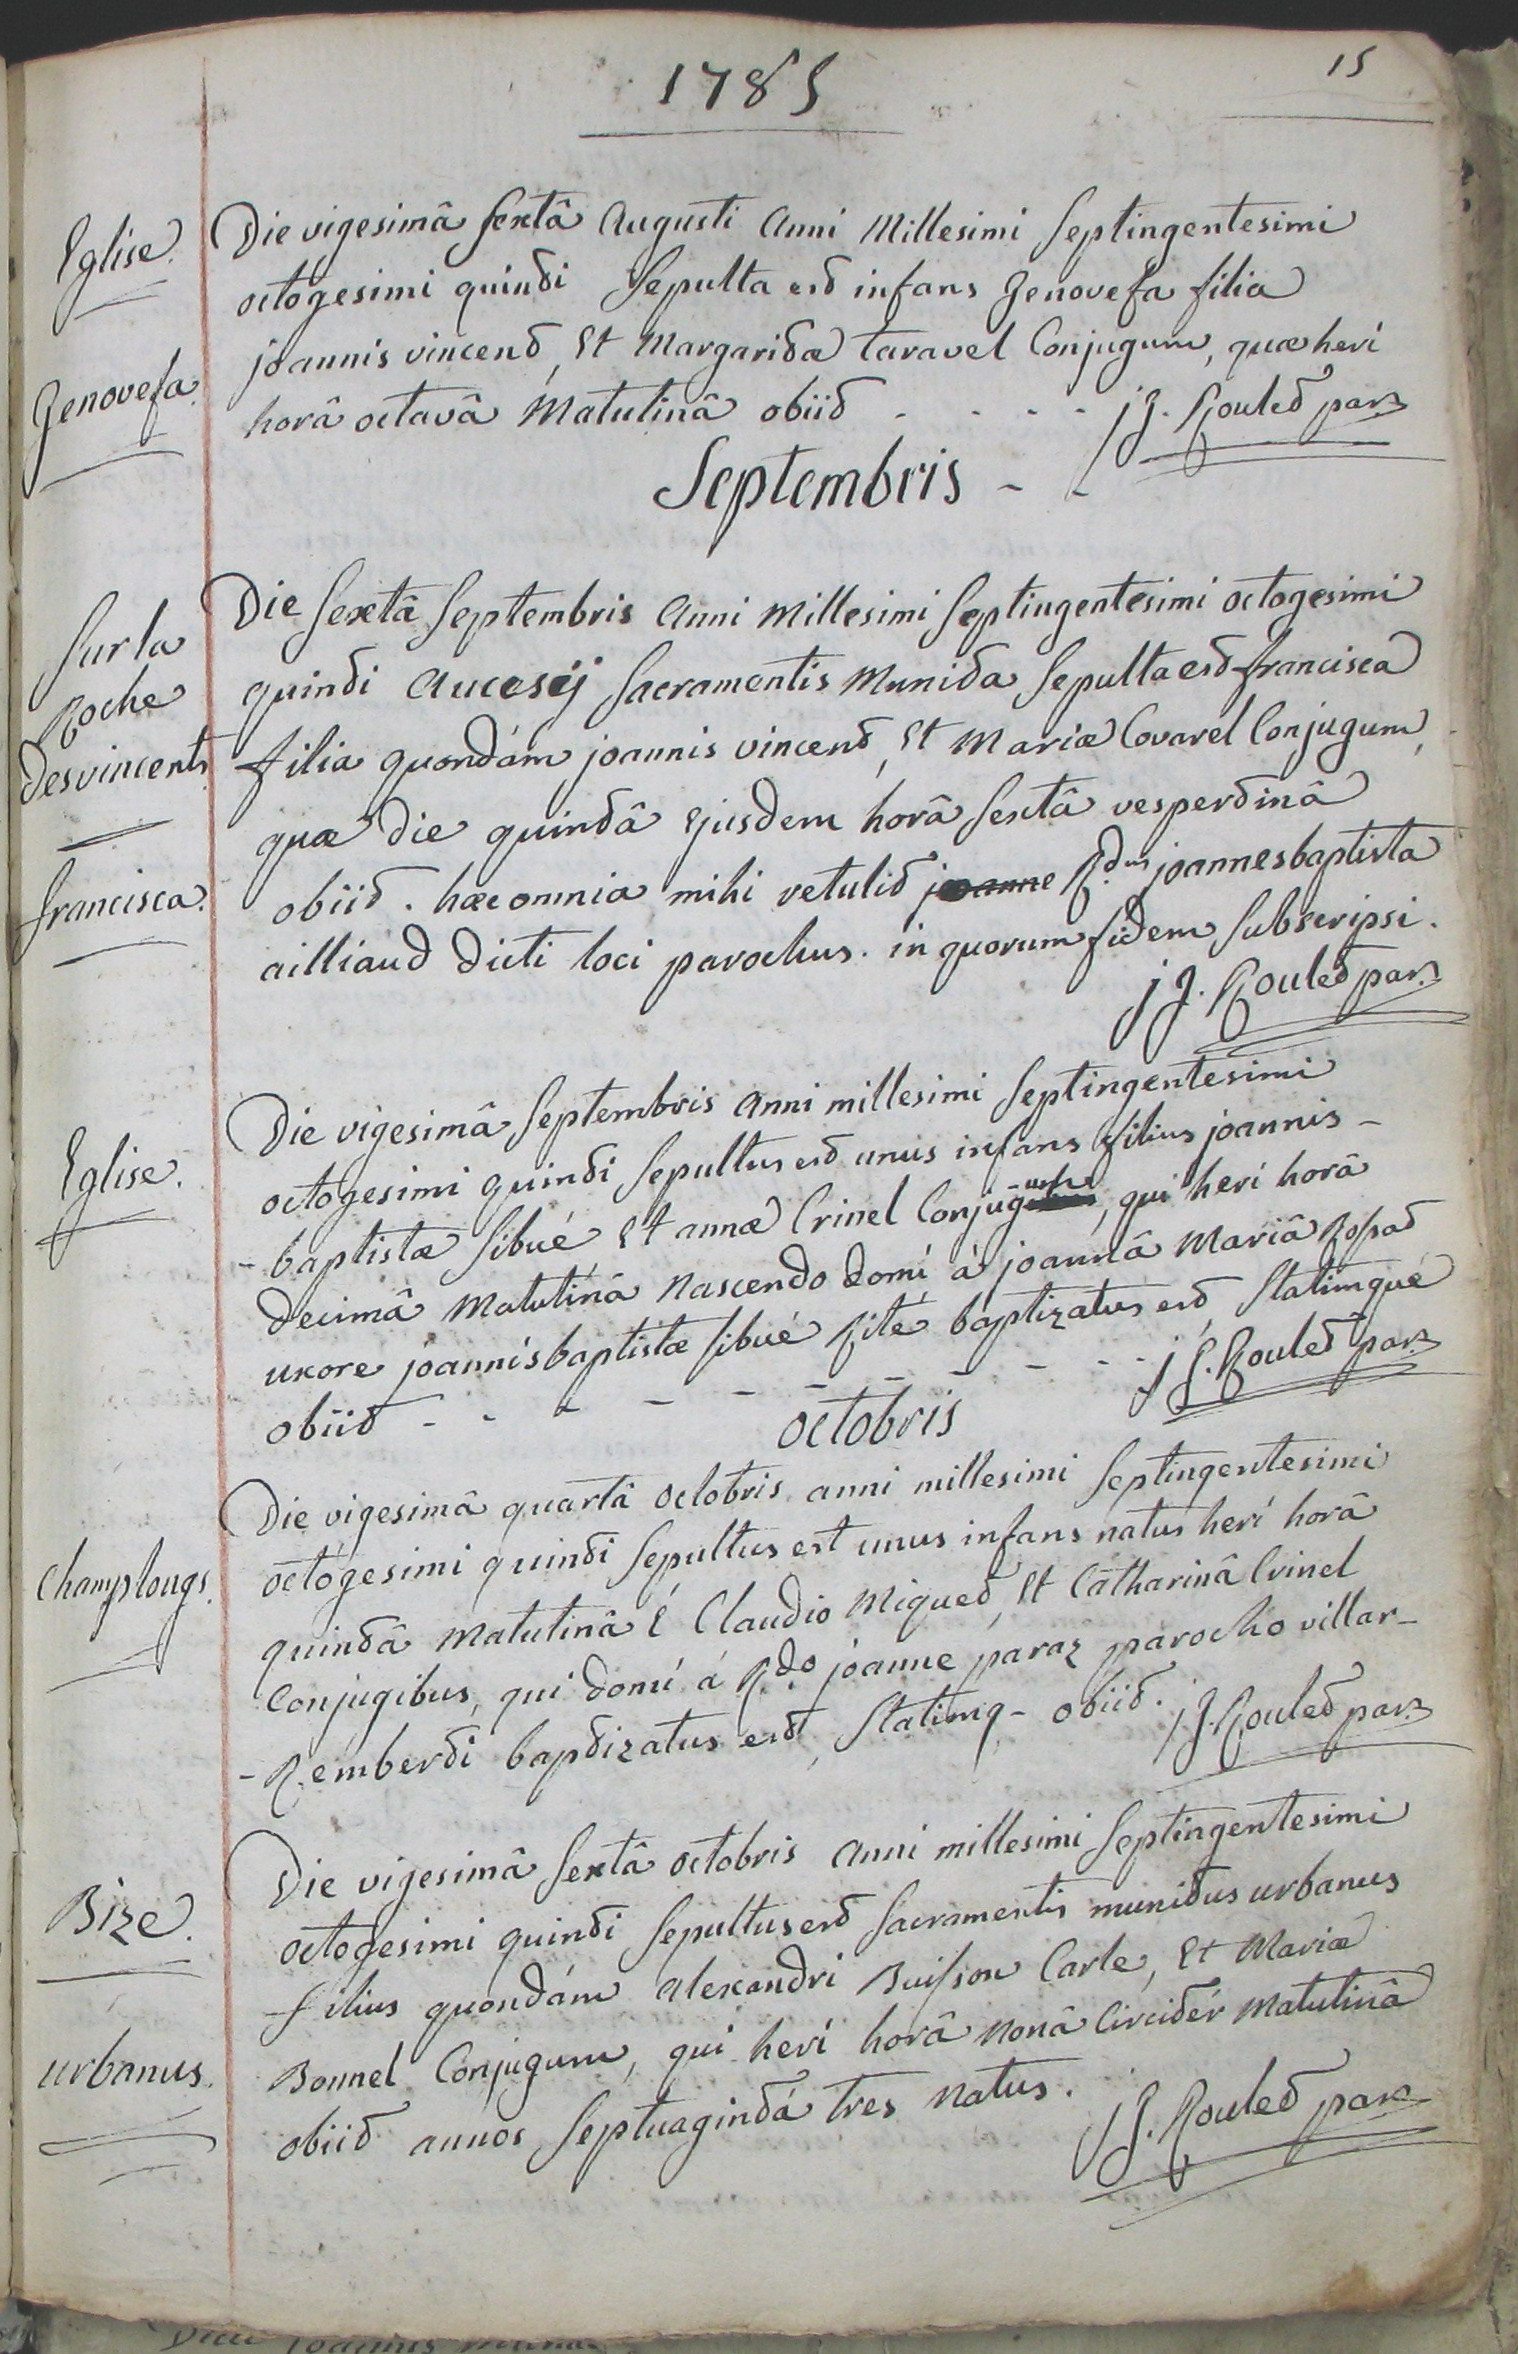 1785
15
Eglise.
Genovefa.
Die vigesimâ sextâ Augusti Anni Millesimi Septingentesimi
octogesimi quinti Sepulta est infans Genovefa filia
joannis vincent, Et Margaritæ taravel Conjugum, quæ heri
horâ octavâ Matutinâ obiit - - - - jJ. Roulet par.
Septembris - -
Sur la
Roche
des vincents
francisca.
Die Sextâ Septembris Anni Millesimi Septingentesimi octogesimi
quinti Aucesij Sacramentis Munita Sepulta est francisca
filia quondám joannis vincent, Et Mariæ Covarel Conjugum,
quæ die quintâ Ejusdem horâ Sextâ vespertinâ
obiit. hæc omnia mihi retulit joanne R.dus joannes baptista
ailliaud dicti loci parochus. in quorum fidem Subscripsi.
jJ. Roulet par.
Eglise.
Die vigesimâ Septembris Anni millesimi Septingentesimi
octogesimi quinti Sepultus est unus infans filius joannis-
-baptistæ sibué Et annæ Crinel Conjugum, qui heri horâ
decimâ Matutinâ Nascendo domi à joannâ Mariâ Rossat
uxore joannis baptistæ sibué Rité baptizatus est, Statimque
obiit - - - - - - - - - - jJ. Roulet par.
Octobris
Champlongs.
Die vigesimâ quartâ Octobris anni millesimi Septingentesimi
octogesimi quinti Sepultus est unus infans natus heri horâ
quintâ Matutinâ é Claudio Miquet, Et Catharinâ Crinel
Conjugibus, qui domi á R.do joanne paraz parocho villar-
-Remberti baptizatus est, Statimq- obiit. jJ. Roulet par.
Bize.
urbanus.
Die vigesimâ Sextâ octobris Anni millesimi Septingentesimi
octogesimi quinti Sepultus est Sacramentis munitus urbanus
filius quondám Alexandri Buisson Carle, Et Mariæ
Bonnel Conjugum, qui heri horâ Nonâ Circitér Matutinâ
obiit annos Septuagintá tres Natus.
jJ. Roulet par.